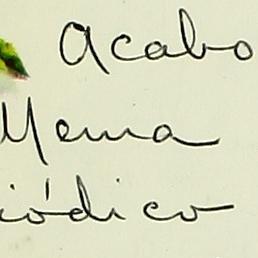 Acabo
Mema
iódico